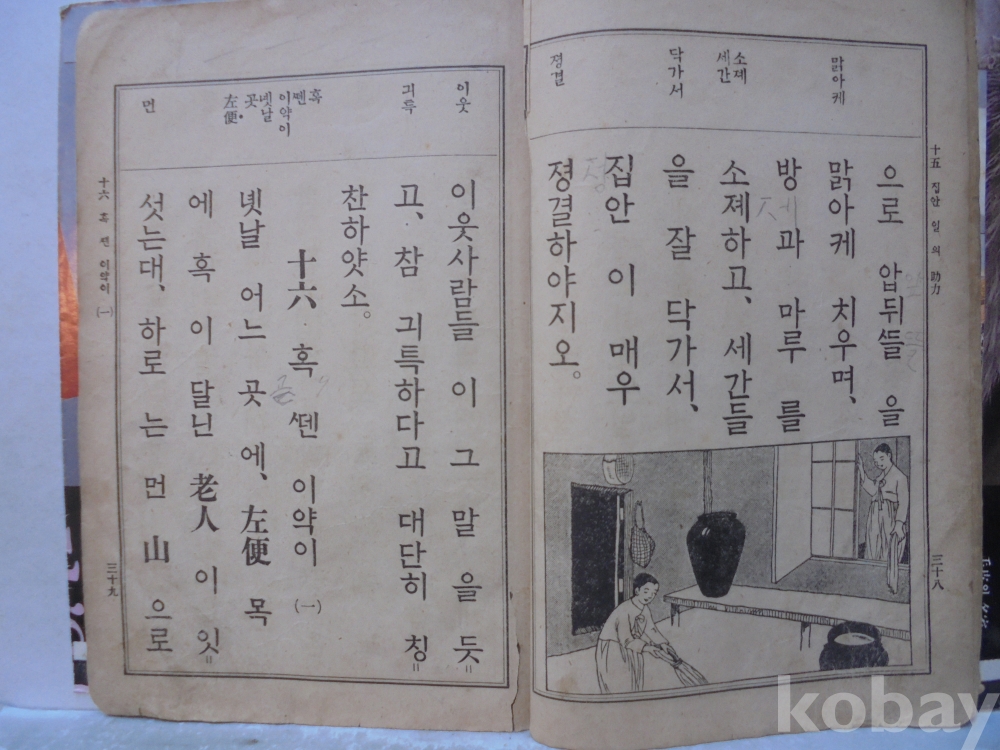 맑아케
소졔
세간
닥가서
졍결
十五 집안 일의 助力
으로 압뒤뜰을
맑아케 치우며,
방과 마루를
소졔하고, 세간들
을 잘 닥가서,
집안이 매우
졍결하야지오。
三十八
이웃
긔특
혹
뗀
이약이
녯날
곳
左便
먼
이웃사람들이 그 말을 듯=
고, 참 긔특하다고 대단히 칭=
찬하얏소。
十六 혹 뗀 이약이 (一)
녯날 어느 곳에, 左便 목
에 혹이 달닌 老人이 잇=
섯는대, 하로는 먼 山으로
十六 혹 뗀 이약이 (一)
三十九
kobay